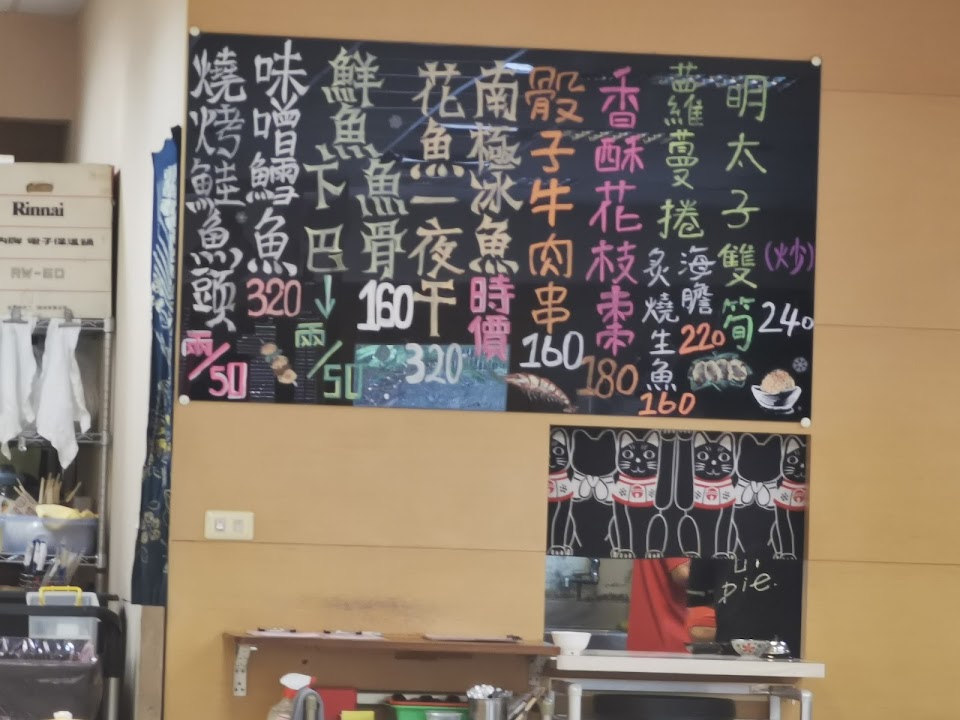 明太子雙筍(炒)
240
蘿蔓捲
海膽
220
炙燒生魚
160
香酥花枝棗
180
骰子牛肉串
160
南極冰魚
時價
花魚一夜干
320
鮮魚
魚骨
160
卞巴↓
兩/50
味噌鱈魚
320
燒烤鮭魚頭
兩/50
Rinnai